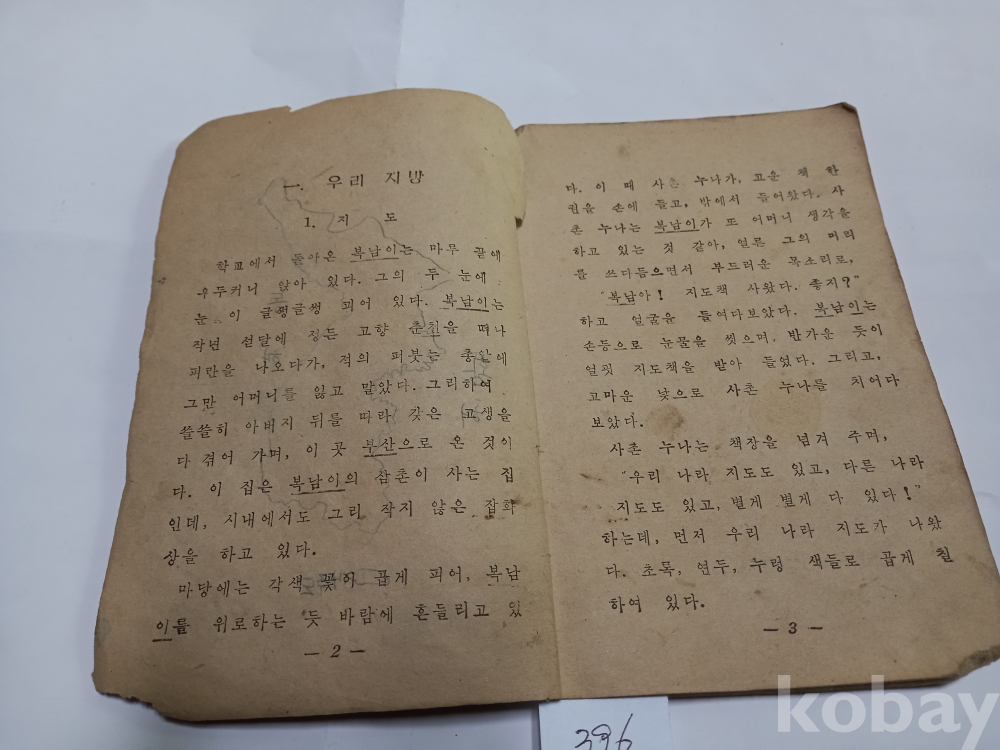 一. 우리 지방
1. 지 도
학교에서 돌아온 복남이는 마루 끝에
우두커니 앉아 있다. 그의 두 눈에
눈 이 글썽글썽 피어 있다. 복남이는
작년 섣달에 정든 고향 춘천을 떠나
피란을 나오다가, 적의 퍼붓는 총알에
그만 어머니를 잃고 말았다. 그리하여
쓸쓸히 아버지 뒤를 따라 갖은 고생을
다 겪어 가며, 이 곳 부산으로 온 것이
다. 이 집은 복남이의 삼촌이 사는 집
인데, 시내에서도 그리 작지 않은 잡화
상을 하고 있다.
마당에는 각색 꽃이 곱게 피어, 복남
이를 위로하는 듯 바람에 흔들리고 있
— 2 —
다. 이 때 사촌 누나가, 고운 책 한
권을 손에 들고, 밖에서 들어왔다. 사
촌 누나는 복남이가 또 어머니 생각을
하고 있는 것 같아, 얼른 그의 머리
를 쓰다듬으면서 부드러운 목소리로,
"복남아! 지도책 사왔다. 좋지?"
하고 얼굴을 들여다보았다. 복남이는
손등으로 눈물을 씻으며, 반가운 듯이
얼핏 지도책을 받아 들었다. 그리고,
고마운 낯으로 사촌 누나를 치어다
보았다.
사촌 누나는 책장을 넘겨 주며,
"우리 나라 지도도 있고, 다른 나라
지도도 있고, 별게 별게 다 있다!"
하는데, 먼저 우리 나라 지도가 나왔
다. 초록, 연두, 누렁 색들로 곱게 칠
하여 있다.
— 3 —
396
kobay